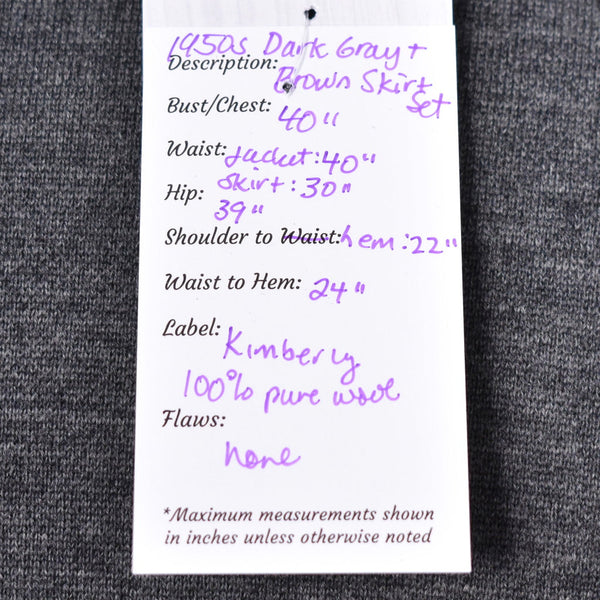 1950s Dark Gray +
Description: Brown Skirt
Set
Bust/Chest: 40"
Waist: Jacket: 40"
Skirt: 30"
Hip: 39"
Shoulder to Waist: hem: 22"
Waist to Hem: 24"
Label: Kimberly
100% pure wool
Flaws:
none
*Maximum measurements shown
in inches unless otherwise noted